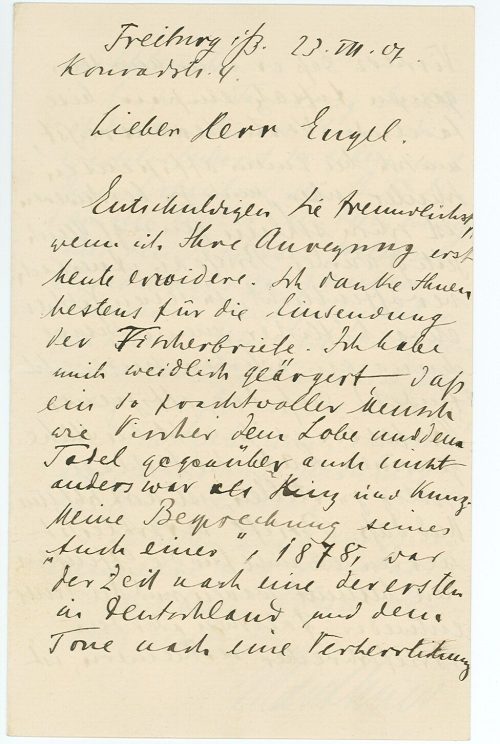 Freiburg i/B. 23. VII. 07.
Konradstr. 4.
Lieber Herr Engel.
Entschuldigen Sie freundlichst,
wenn ich Ihre Anregung erst
heute erwidere. Ich danke Ihnen
bestens für die Einsendung
der Fischerbriefe. Ich habe
mich weidlich geärgert, daß
ein so prachtvoller Mensch
wie Vischer dem Lobe und dem
Tadel gegenüber auch nicht
anders war als Hinz und Kunz.
Meine Besprechung seines
"Auch einer", 1878, war
der Zeit nach eine der ersten
in Deutschland und dem
Tone nach eine Verherrlichung